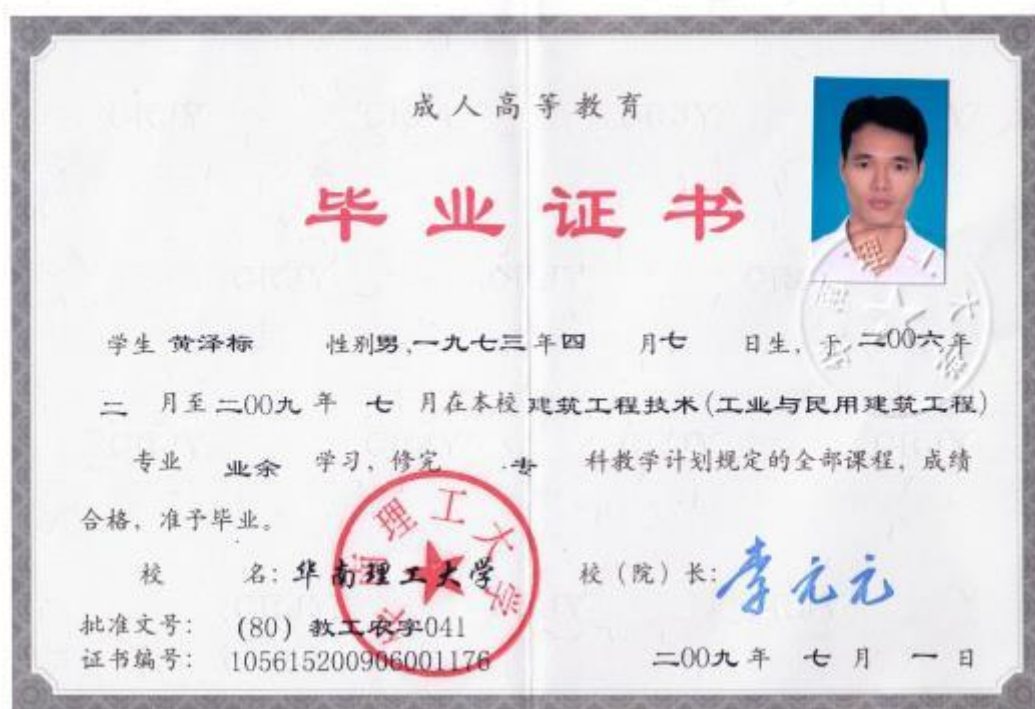 成人高等教育
毕业证书
学生 黄泽标 性别男,一九七三年四 月七 日生,于 二00六年
二 月至二00九 年 七 月在本校建筑工程技术(工业与民用建筑工程)
专业 业余 学习,修完 专 科教学计划规定的全部课程,成绩
合格,准予毕业。
校 名:华南理工大学 校(院)长:李元元
批准文号: (80)教工农字041
证书编号: 105615200906001176 二00九年 七月 一日
华南理工大学